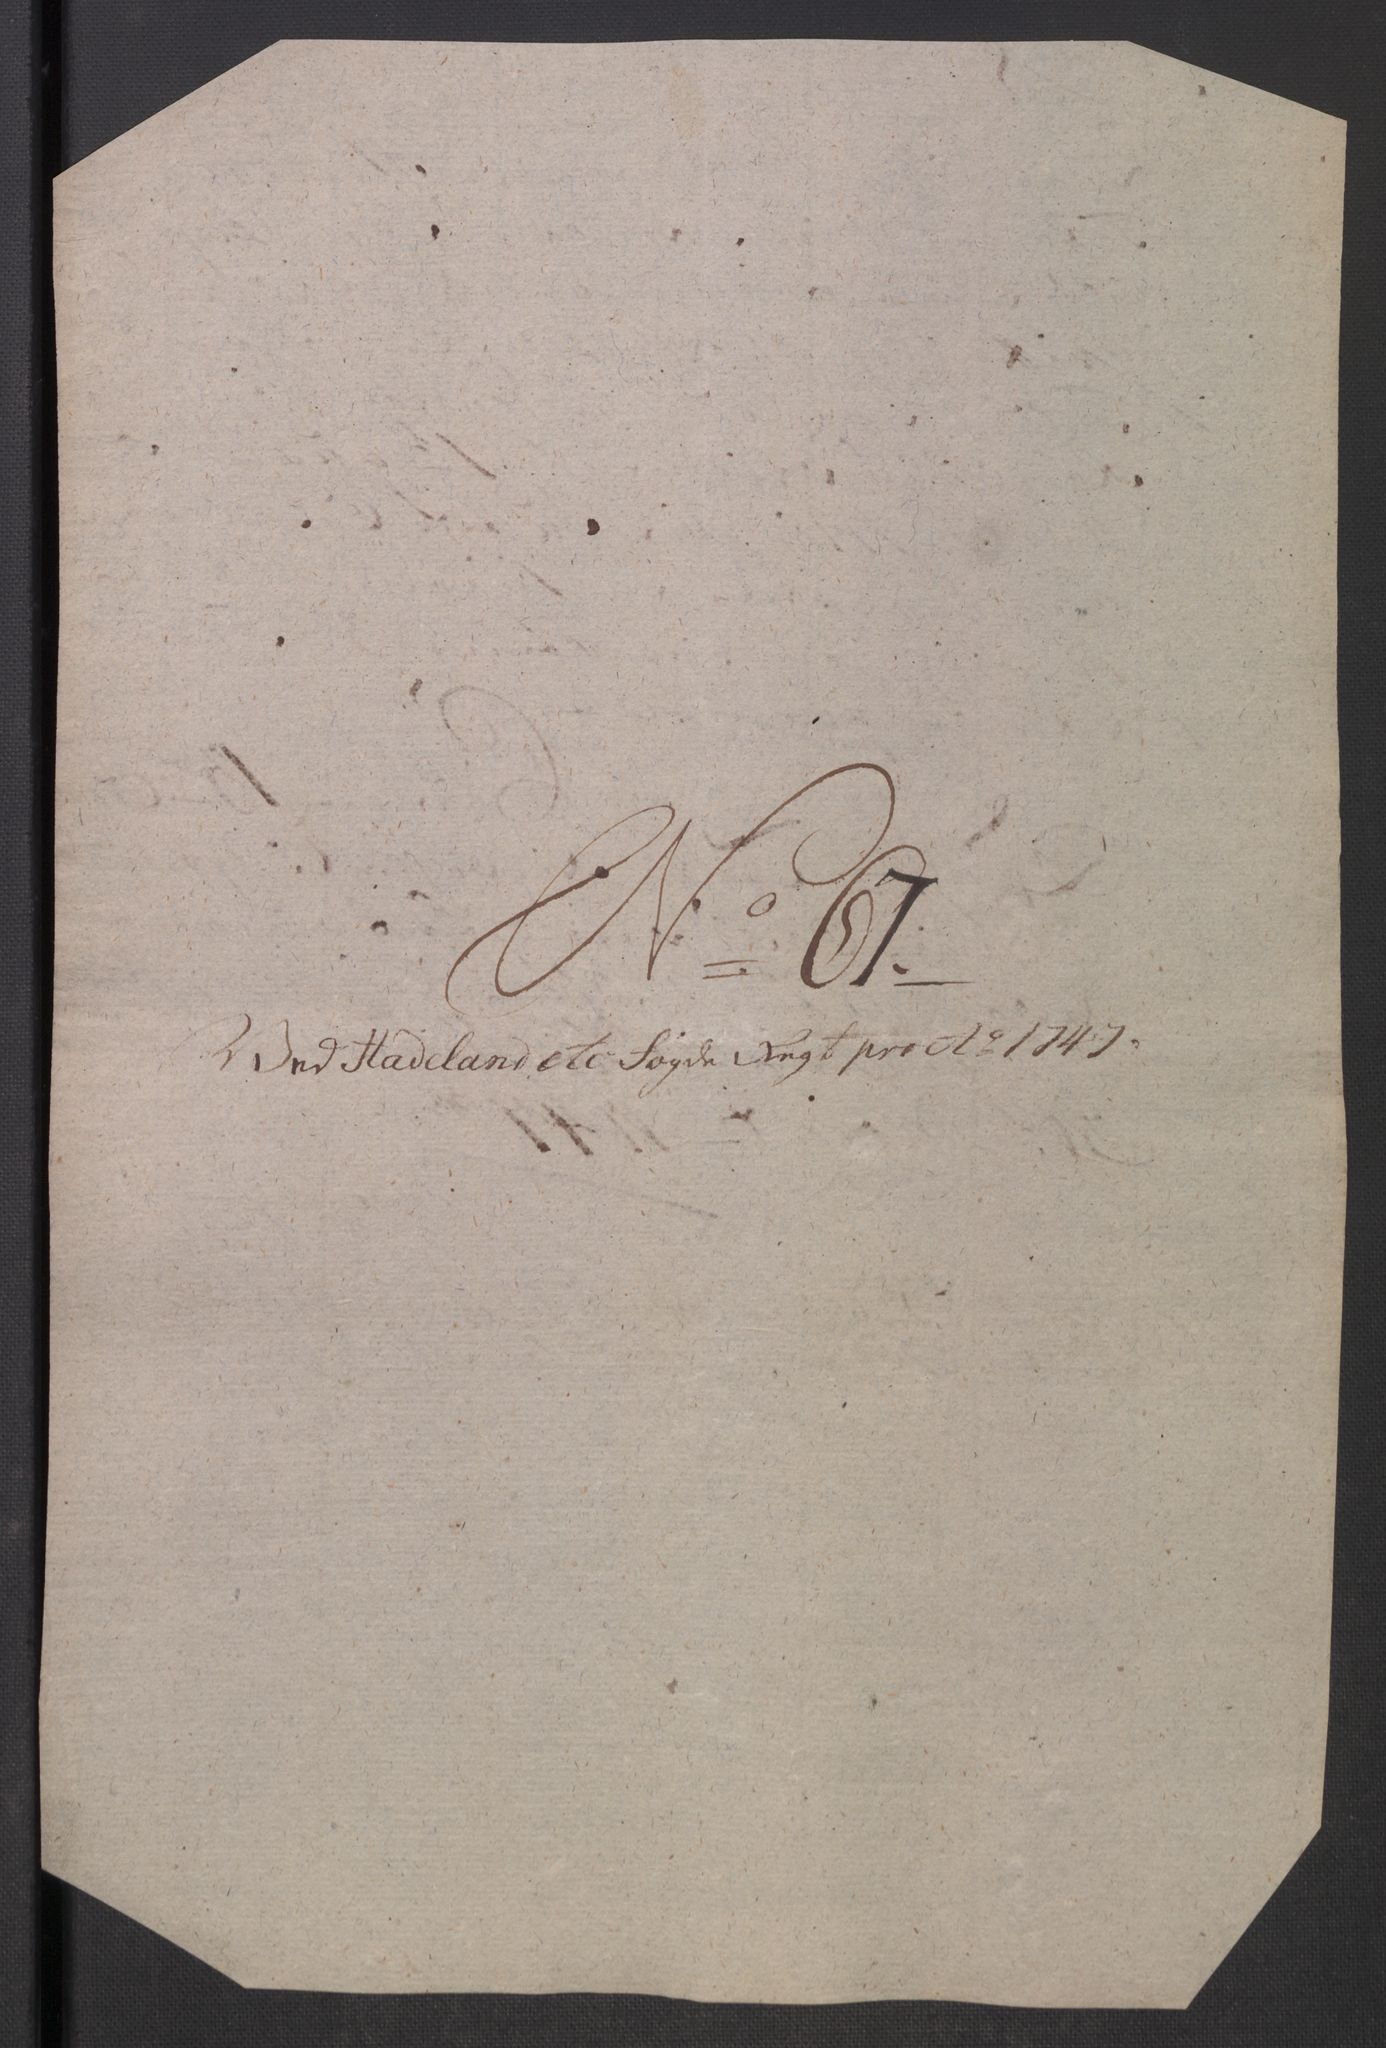 No 67.
Ved Hadeland etc Fogde Regt pro Ao 1747.